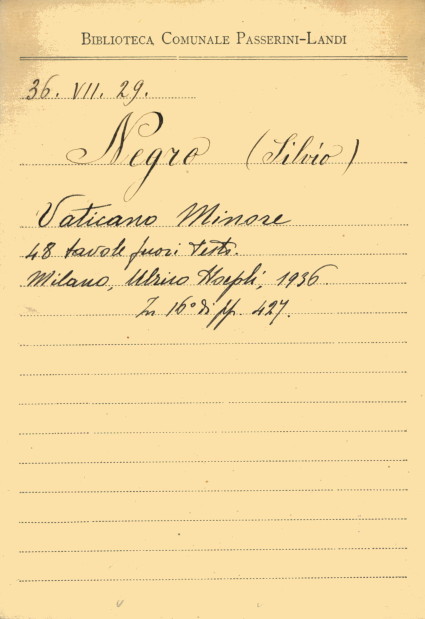 BIBLIOTECA COMUNALE PASSERINI-LANDI
36. VII. 29.
Negro (Silvio)
Vaticano Minore
48 tavole fuori testo.
Milano, Ulrico Hoepli, 1936
In 16° di pp. 427.